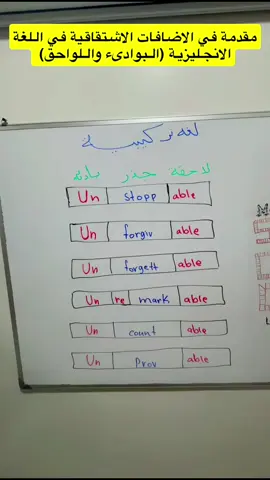 مقدمة في الاضافات الاشتقاقية في اللغة
الانجليزية (البوادىء واللواحق)
لغه تركيبيه
لاحقة جذر بادئه
Un stopp able
Un forgiv able
Un forgett able
Un re mark able
Un count able
Un Prov able